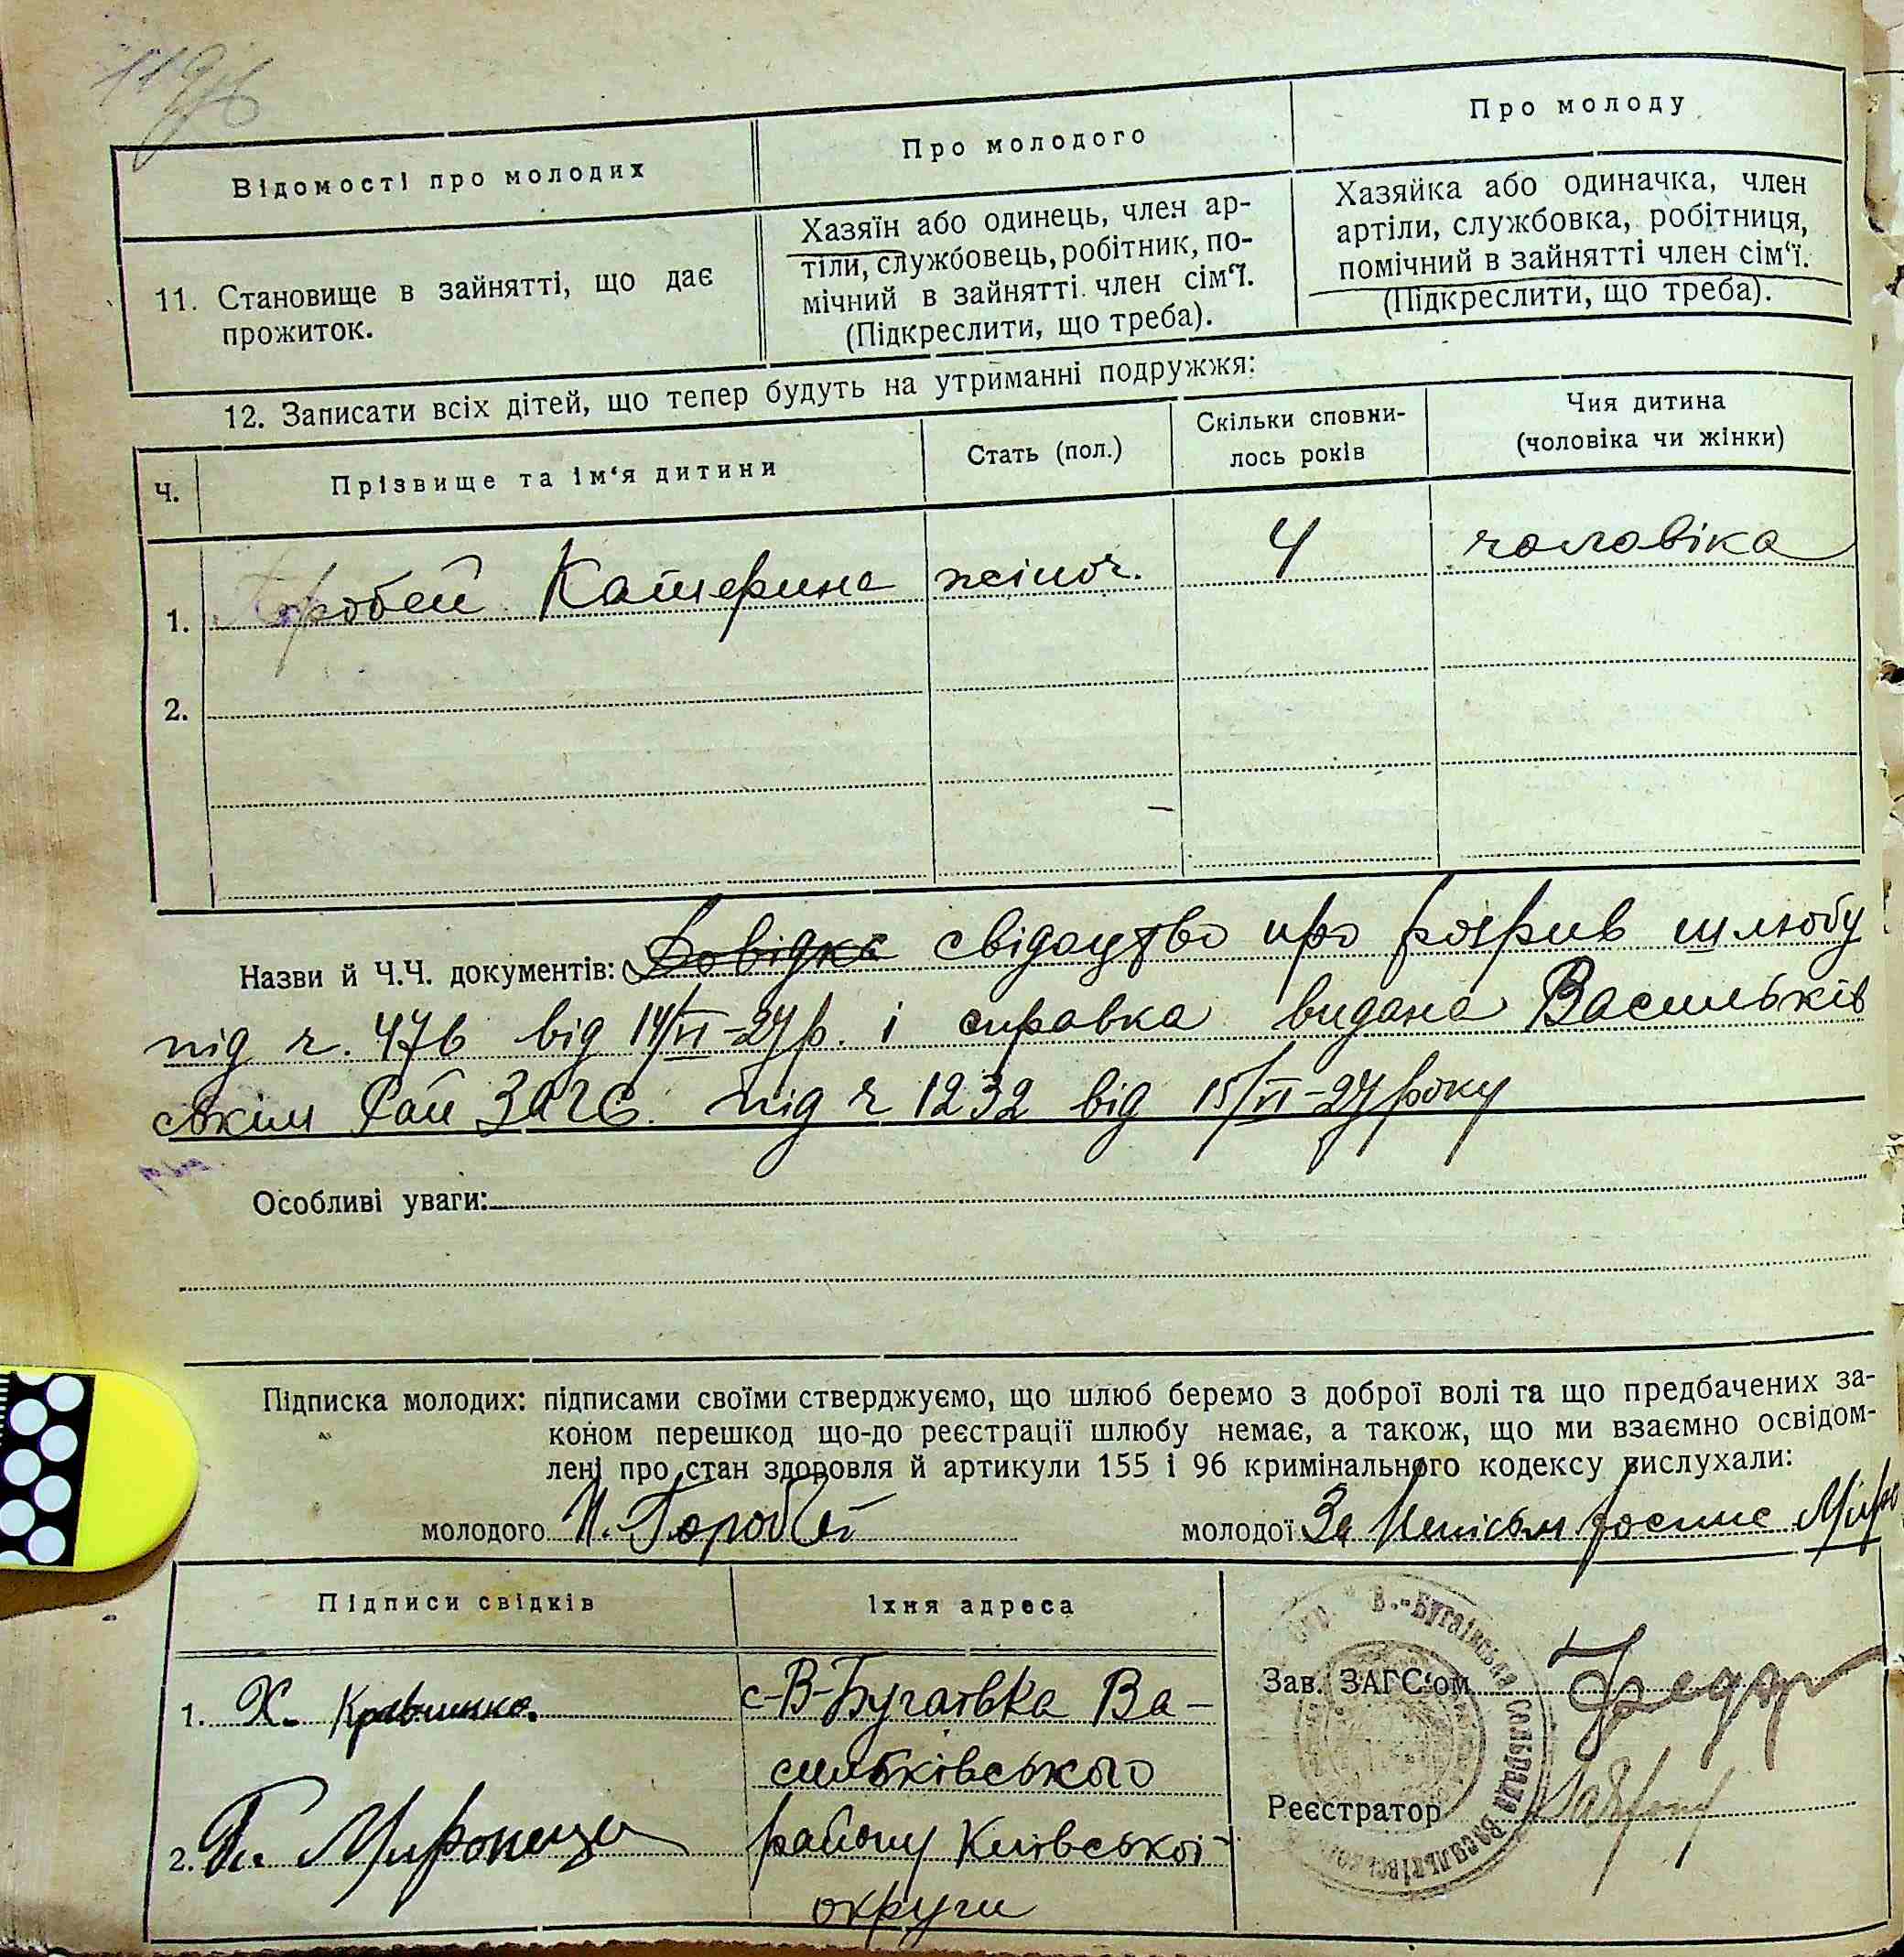 Відомості про молодих
Про молодого
Про молоду
11. Становище в зайнятті, що дає
прожиток.
Хазяїн або одинець, член ар-
тіли, службовець, робітник, по-
мічний в зайнятті член сім'ї.
(Підкреслити, що треба).
Хазяйка або одиначка, член
артіли, службовка, робітниця,
помічний в зайнятті член сім'ї.
(Підкреслити, що треба).
12. Записати всіх дітей, що тепер будуть на утриманні подружжя:
Ч.
Прізвище та ім'я дитини
Стать (пол.)
Скільки сповни-
лось років
Чия дитина
(чоловіка чи жінки)
1. Горобей Катерина жіноч. 4 чоловіка
2.
Назви й Ч.Ч. документів: Довідка свідоцтво про розрив шлюбу
під ч. 476 від 14/VI-27 р. і справка видана Васильків
ським Рай ЗАГС. під ч 1232 від 15/VI-27 року
Особливі уваги:
Підписка молодих: підписами своїми стверджуємо, що шлюб беремо з доброї волі та що предбачених за-
коном перешкод що-до реєстрації шлюбу немає, а також, що ми взаємно освідом-
лені про стан здоровля й артикули 155 і 96 кримінального кодексу вислухали:
молодого Горобей
молодої За
Підписи свідків
Їхня адреса
1. Х. Кравченко.
с-В-Бугаївка Ва-
сильківського
2. Миронець
району Київської
округи
Зав. ЗАГС'ом
Реєстратор
В.-Бугаївська Сільрада Васильківського